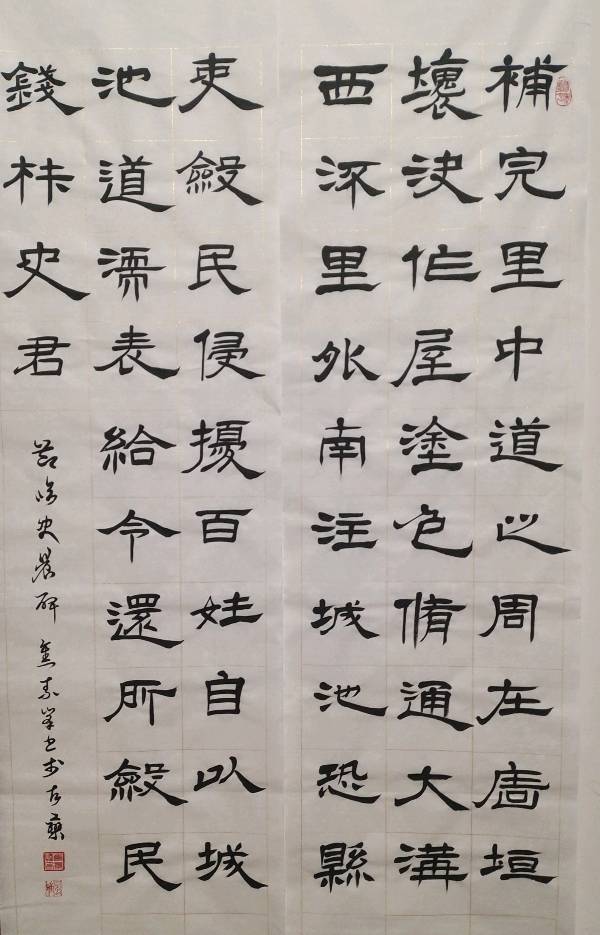 補完里中道之周左廧垣
壞決作屋塗色脩通大溝
西流里外南注城池恐縣
吏斂民侵擾百姓自以城
池道濡表給令還所斂民
錢材史君
節臨史晨碑 書於古